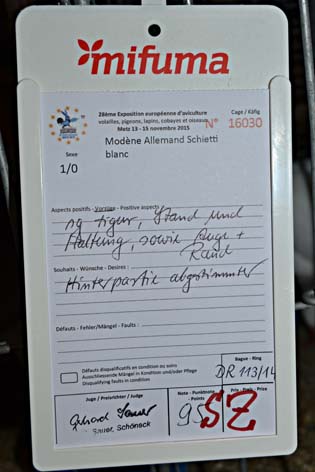 mifuma
28ème Exposition européenne d'aviculture
volailles, pigeons, lapins, cobayes et oiseaux
Metz 13 - 15 novembre 2015
Cage / Käfig
N° 16030
Modène Allemand Schietti
blanc
Sexe
1/0
Aspects positifs - Vorzüge - Positive aspects
Stand und
Haltung, sowie Auge +
Rand
Souhaits - Wünsche - Desires :
Hinterpartie abgestimmter
Défauts - Fehler/Mängel - Faults :
Défauts disqualificatifs en condition ou soins
Ausschliessende Mängel in Kondition und/oder Pflege
Disqualifying faults in condition
Bague - Ring
DR 113/14
Juge / Preisrichter / Judge
Gerhard Sauer
Sauer, Schöneck
Note - Punktnote
- Points
95
Prix - Preis - Prize
SZ